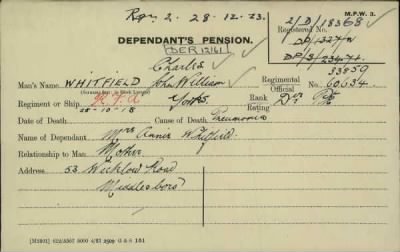 Reg. 2. 28.12.23.
M.P.W. 3.
DEPENDANT'S PENSION.
2/D/18368
Registered No.
DER 12161
D/1327/N
DP/3/23471.
Charles
33859
Man's Name WHITFIELD John William
Regimental Official No. 60634
(Surname first in Block Letters)
Regiment or Ship R.F.A Yorks.
Rank Rating Dr. Pte
Date of Death 28-10-18 Cause of Death Pneumonia
Name of Dependant Mrs Annie Whitfield
Relationship to Man Mother
Address 53 Wicklow Road
Middlesboro'
[M2801] 622/A567 5000 4/23 2509 G & S 151